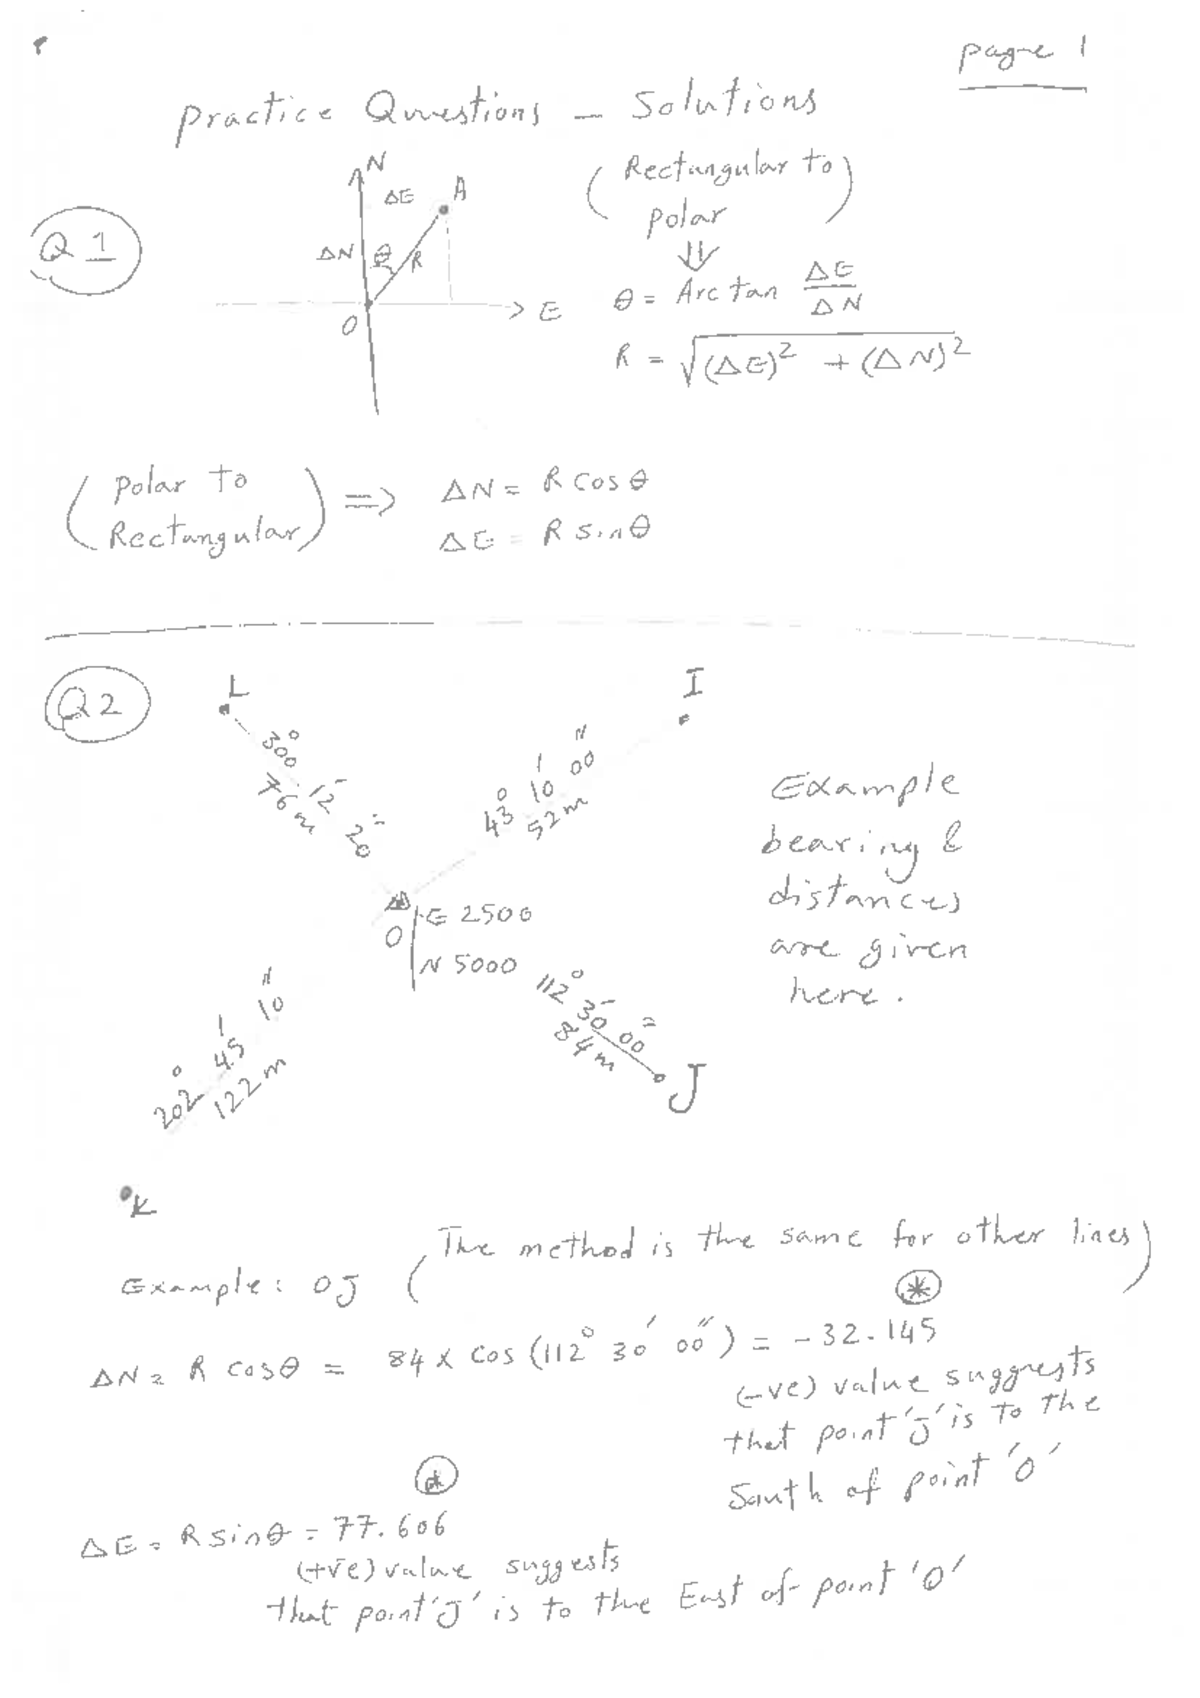 page 1
Practice Quuestions – Solutions
Q 1
N
ΔE
A
ΔN
θ
R
O
E
(Rectangular to
polar)
⇓
θ = Arc tan ΔE/ΔN
R = √(ΔE)² + (ΔN)²
(Polar to
Rectangular) => ΔN = R cos θ
ΔE = R sin θ
Q2
L
I
300° 12' 20"
76 m
43° 10' 00"
52 m
O
E 2500
N 5000
202° 45' 10"
122 m
112° 30' 00"
84 m
J
K
Example
bearing &
distances
are given
here.
(The method is the same for other lines)
Example: OJ
ΔN = R cosθ = 84 x cos (112° 30' 00") = -32.145 *
(-ve) value suggests
that point 'J' is to the
South of point 'O'
*
ΔE = R sinθ = 77.606
(+ve) value suggests
that point 'J' is to the East of point 'O'